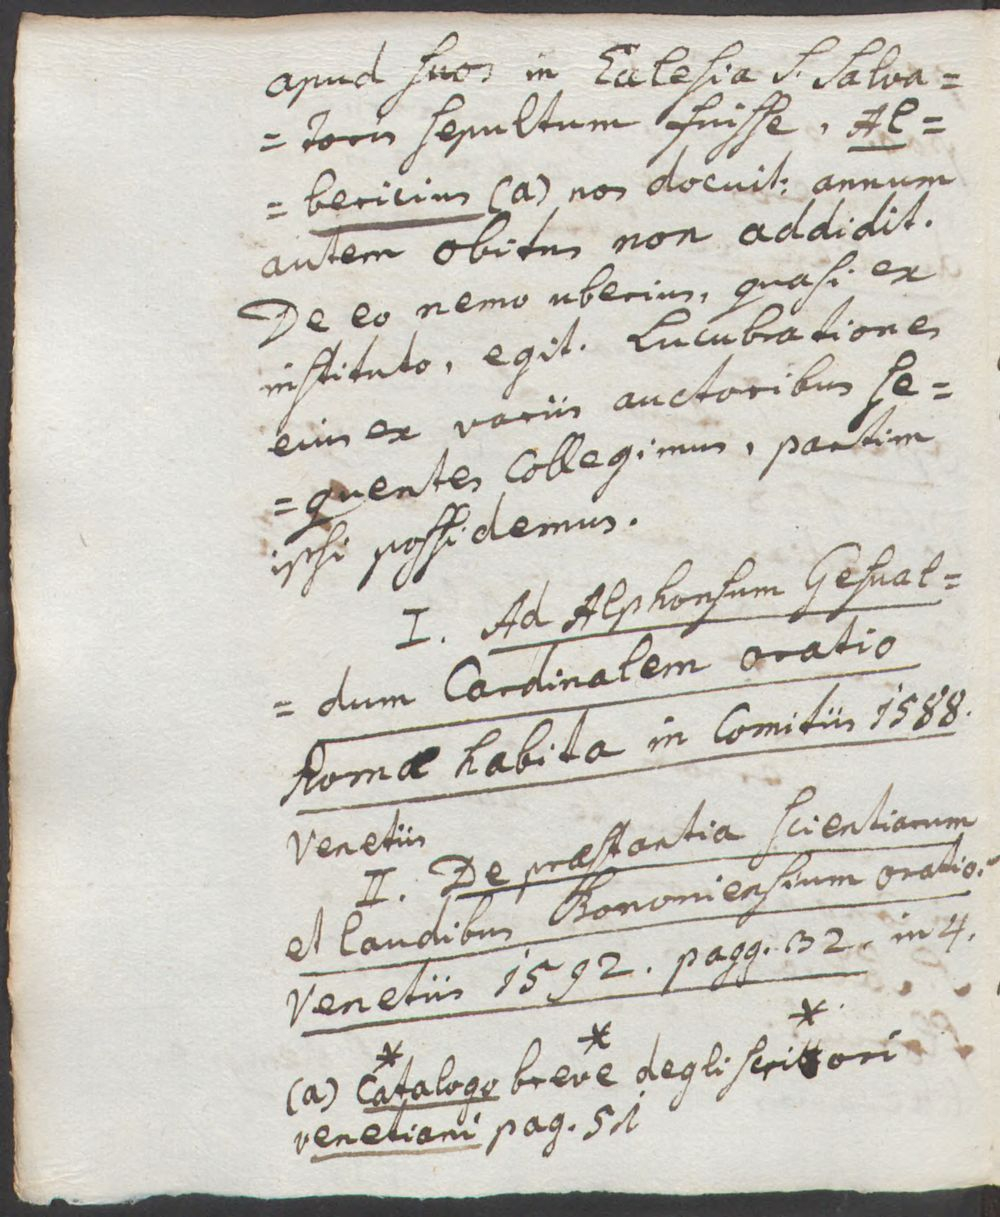 apud suos in Ecclesia S. Salva=
=toris sepultum fuisse, Al=
=bericius (a) nos docuit: annum
autem obitus non addidit.
De eo nemo uberius, quasi ex
instituto, egit. Lucubrationes
eius ex variis auctoribus se=
=quentes collegimus, partim
ipsi possidemus.
I. Ad Alphonsum Gesual=
=dum Cardinalem oratio
Romæ habita in Comitiis 1588.
Venetiis
II. De præstantia scientiarum
et laudibus Bononiensium oratio.
Venetiis 1592. pagg. 32. in 4.
* * *
(a) Catalogo breve degli scrittori
venetiani pag. 51